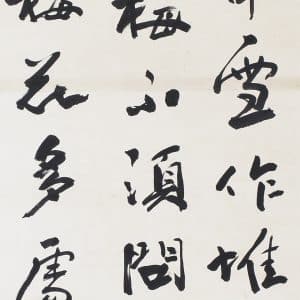 雪作堆
梅不須問
梅花多處